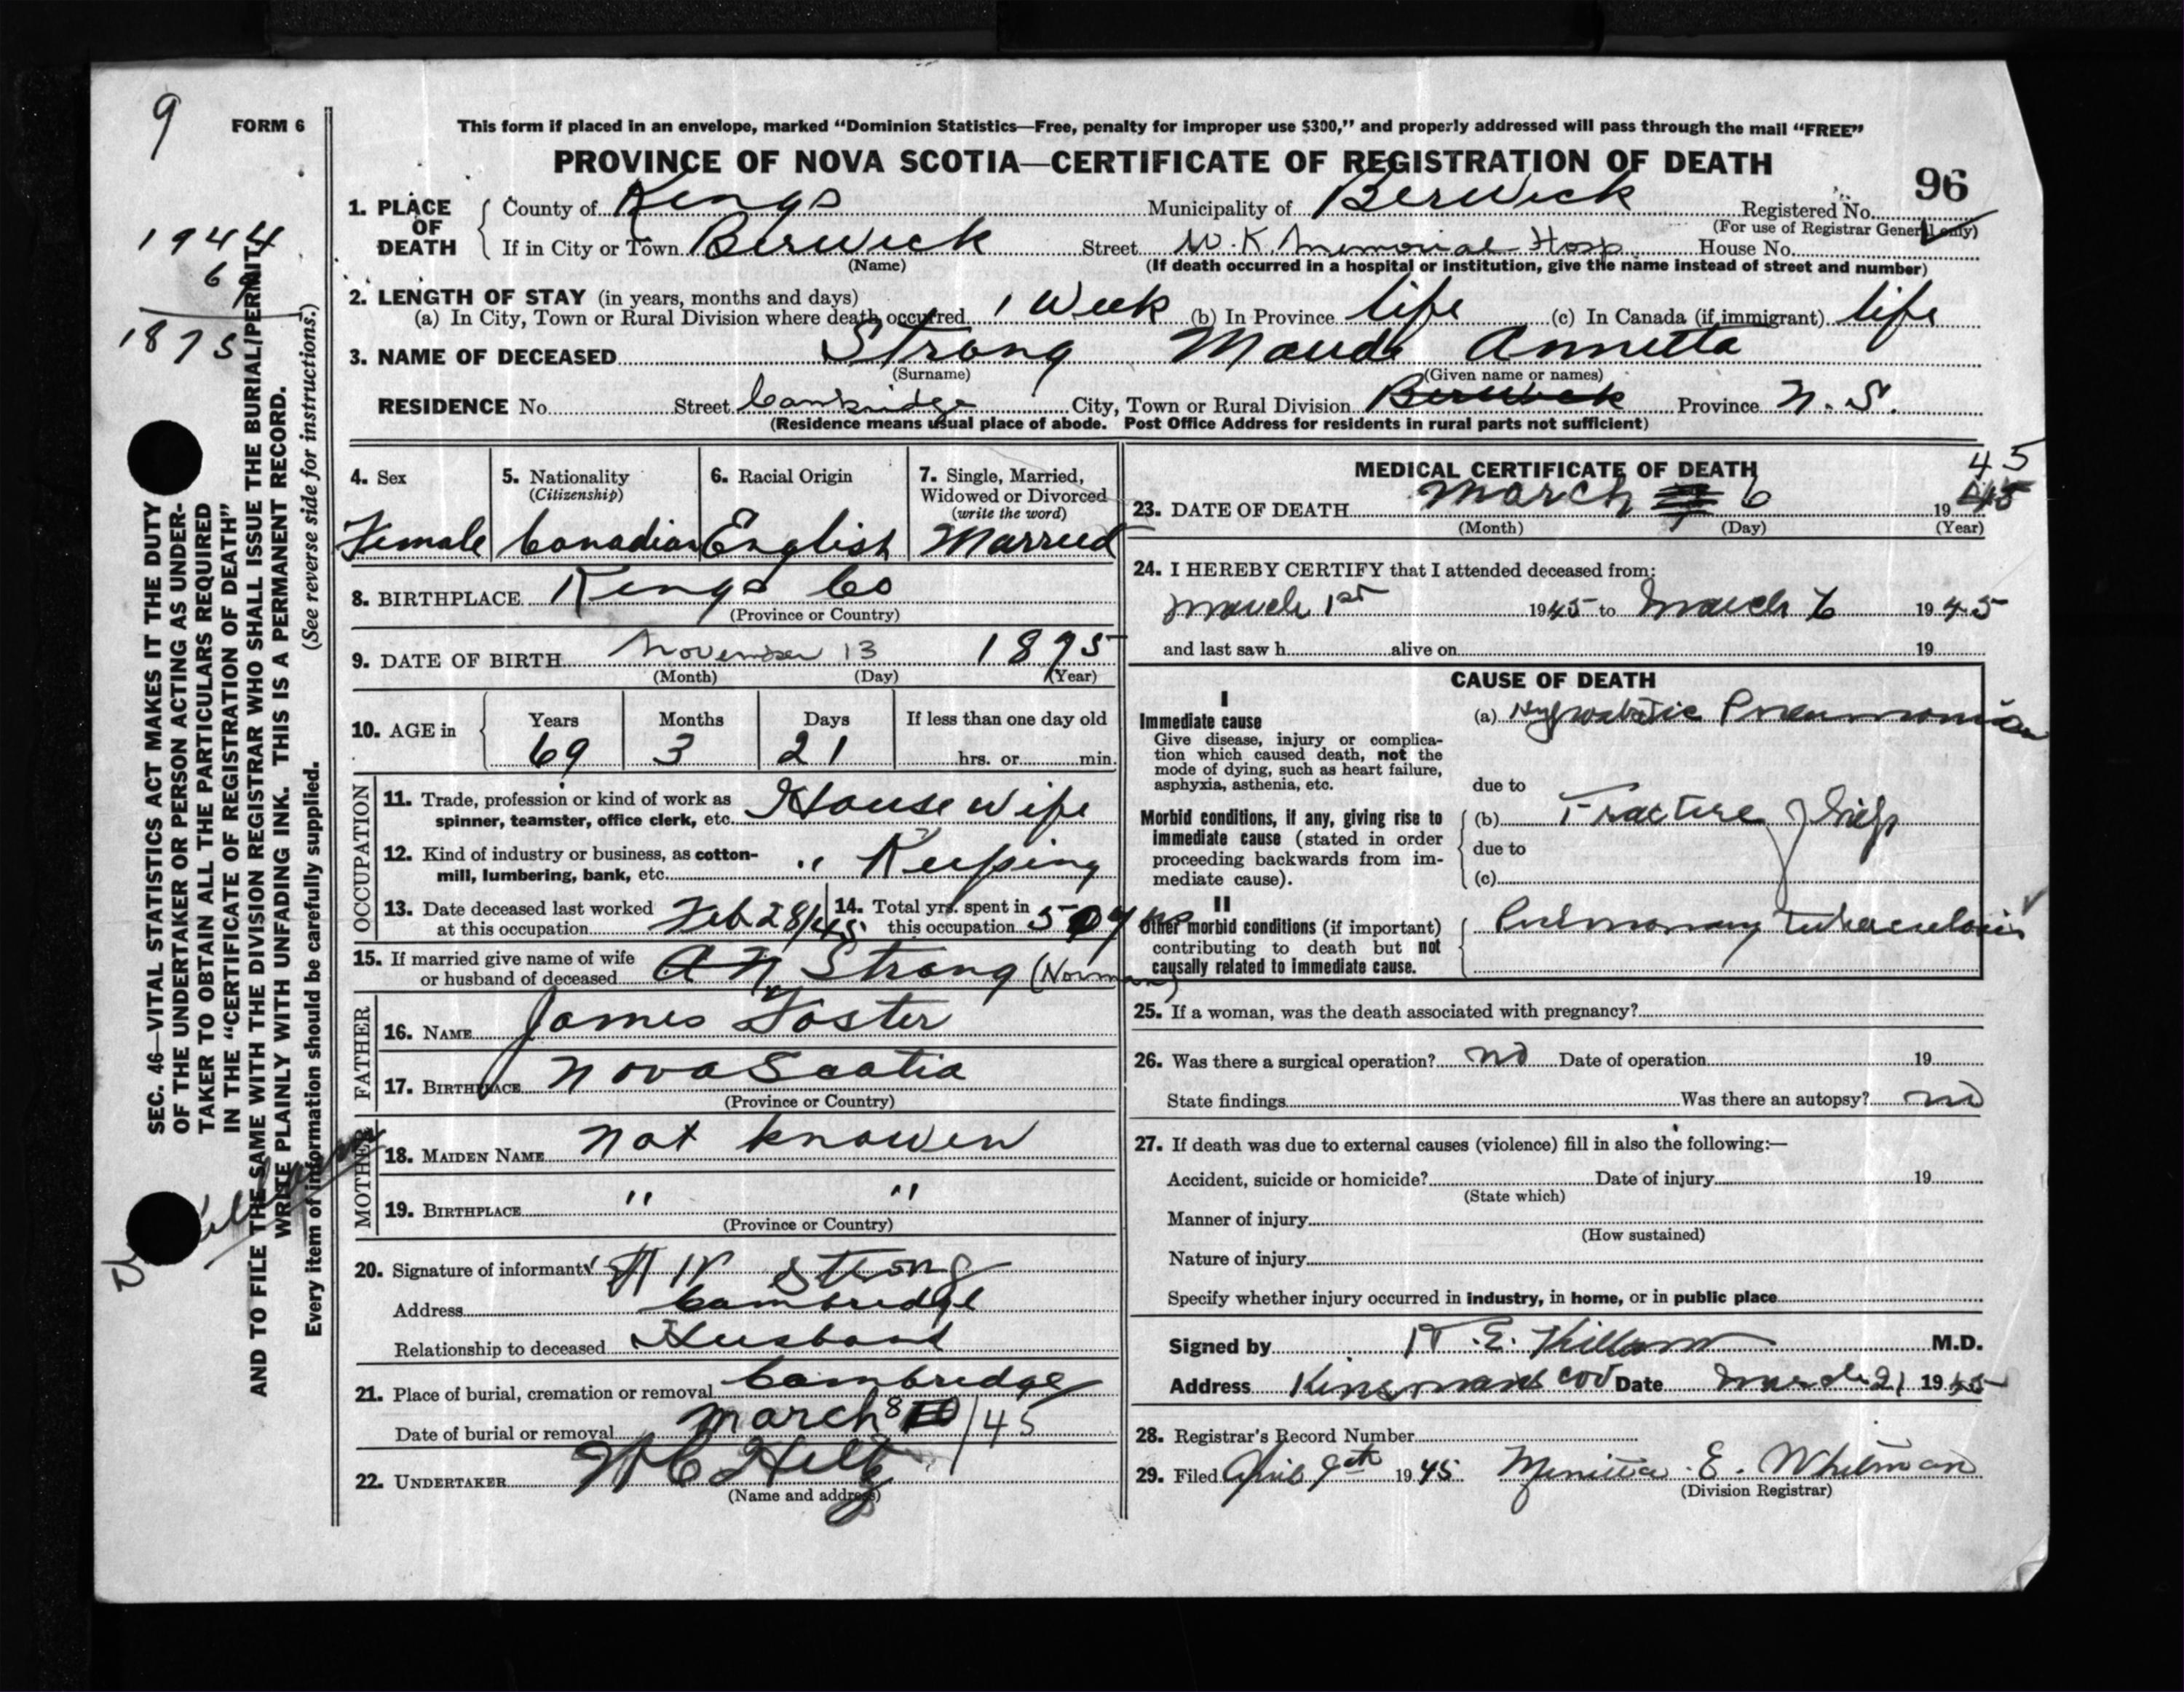 9
FORM 6
This form if placed in an envelope, marked "Dominion Statistics—Free, penalty for improper use $300," and properly addressed will pass through the mail "FREE"
PROVINCE OF NOVA SCOTIA—CERTIFICATE OF REGISTRATION OF DEATH
96
1. PLACE OF DEATH
County of Kings Municipality of Berwick Registered No.
(For use of Registrar General only)
If in City or Town Berwick Street W. K. Memorial Hosp House No.
(Name) (If death occurred in a hospital or institution, give the name instead of street and number)
2. LENGTH OF STAY (in years, months and days)
(a) In City, Town or Rural Division where death occurred 1 Week (b) In Province life (c) In Canada (if immigrant) life
3. NAME OF DECEASED Strong Maude Annetta
(Surname) (Given name or names)
RESIDENCE No. Street Cambridge City, Town or Rural Division Berwick Province N. S.
(Residence means usual place of abode. Post Office Address for residents in rural parts not sufficient)
1944
69
1875
SEC. 46—VITAL STATISTICS ACT MAKES IT THE DUTY
OF THE UNDERTAKER OR PERSON ACTING AS UNDER-
TAKER TO OBTAIN ALL THE PARTICULARS REQUIRED
IN THE "CERTIFICATE OF REGISTRATION OF DEATH"
AND TO FILE THE SAME WITH THE DIVISION REGISTRAR WHO SHALL ISSUE THE BURIAL/PERMIT.
WRITE PLAINLY WITH UNFADING INK. THIS IS A PERMANENT RECORD.
Every item of information should be carefully supplied. (See reverse side for instructions.)
4. Sex 5. Nationality (Citizenship) 6. Racial Origin 7. Single, Married, Widowed or Divorced (write the word)
Female Canadian English Married
8. BIRTHPLACE Kings Co
(Province or Country)
9. DATE OF BIRTH November 13 1875
(Month) (Day) (Year)
10. AGE in Years Months Days If less than one day old
69 3 21 hrs. or min.
OCCUPATION
11. Trade, profession or kind of work as spinner, teamster, office clerk, etc. House wife
12. Kind of industry or business, as cotton-mill, lumbering, bank, etc. " Keeping
13. Date deceased last worked at this occupation Feb 28/45
14. Total yrs. spent in this occupation 50 yrs
15. If married give name of wife or husband of deceased A N Strong (Norman)
FATHER
16. NAME James Foster
17. BIRTHPLACE Nova Scotia
(Province or Country)
MOTHER
18. MAIDEN NAME not knowen
19. BIRTHPLACE " "
(Province or Country)
20. Signature of informant Strong
Address Cambridge
Relationship to deceased Husband
21. Place of burial, cremation or removal Cambridge
Date of burial or removal March 8 /45
22. UNDERTAKER
(Name and address)
MEDICAL CERTIFICATE OF DEATH
45
23. DATE OF DEATH March 6 19 45
(Month) (Day) (Year)
24. I HEREBY CERTIFY that I attended deceased from:
March 1st 1945 to March 6 1945
and last saw h alive on 19
CAUSE OF DEATH
I
Immediate cause
Give disease, injury or complica-
tion which caused death, not the
mode of dying, such as heart failure,
asphyxia, asthenia, etc.
(a) Hypostatic Pneumonia
due to
Morbid conditions, if any, giving rise to
immediate cause (stated in order
proceeding backwards from im-
mediate cause).
(b) Fracture of hip
due to
(c)
II
Other morbid conditions (if important)
contributing to death but not
causally related to immediate cause.
Pulmonary tuberculosis
25. If a woman, was the death associated with pregnancy?
26. Was there a surgical operation? no Date of operation 19
State findings Was there an autopsy? no
27. If death was due to external causes (violence) fill in also the following:—
Accident, suicide or homicide? Date of injury 19
(State which)
Manner of injury
(How sustained)
Nature of injury
Specify whether injury occurred in industry, in home, or in public place
Signed by E. Killam M.D.
Address Kinsmans Cor Date March 21 1945
28. Registrar's Record Number
29. Filed April 9th 1945 E. Whitman
(Division Registrar)